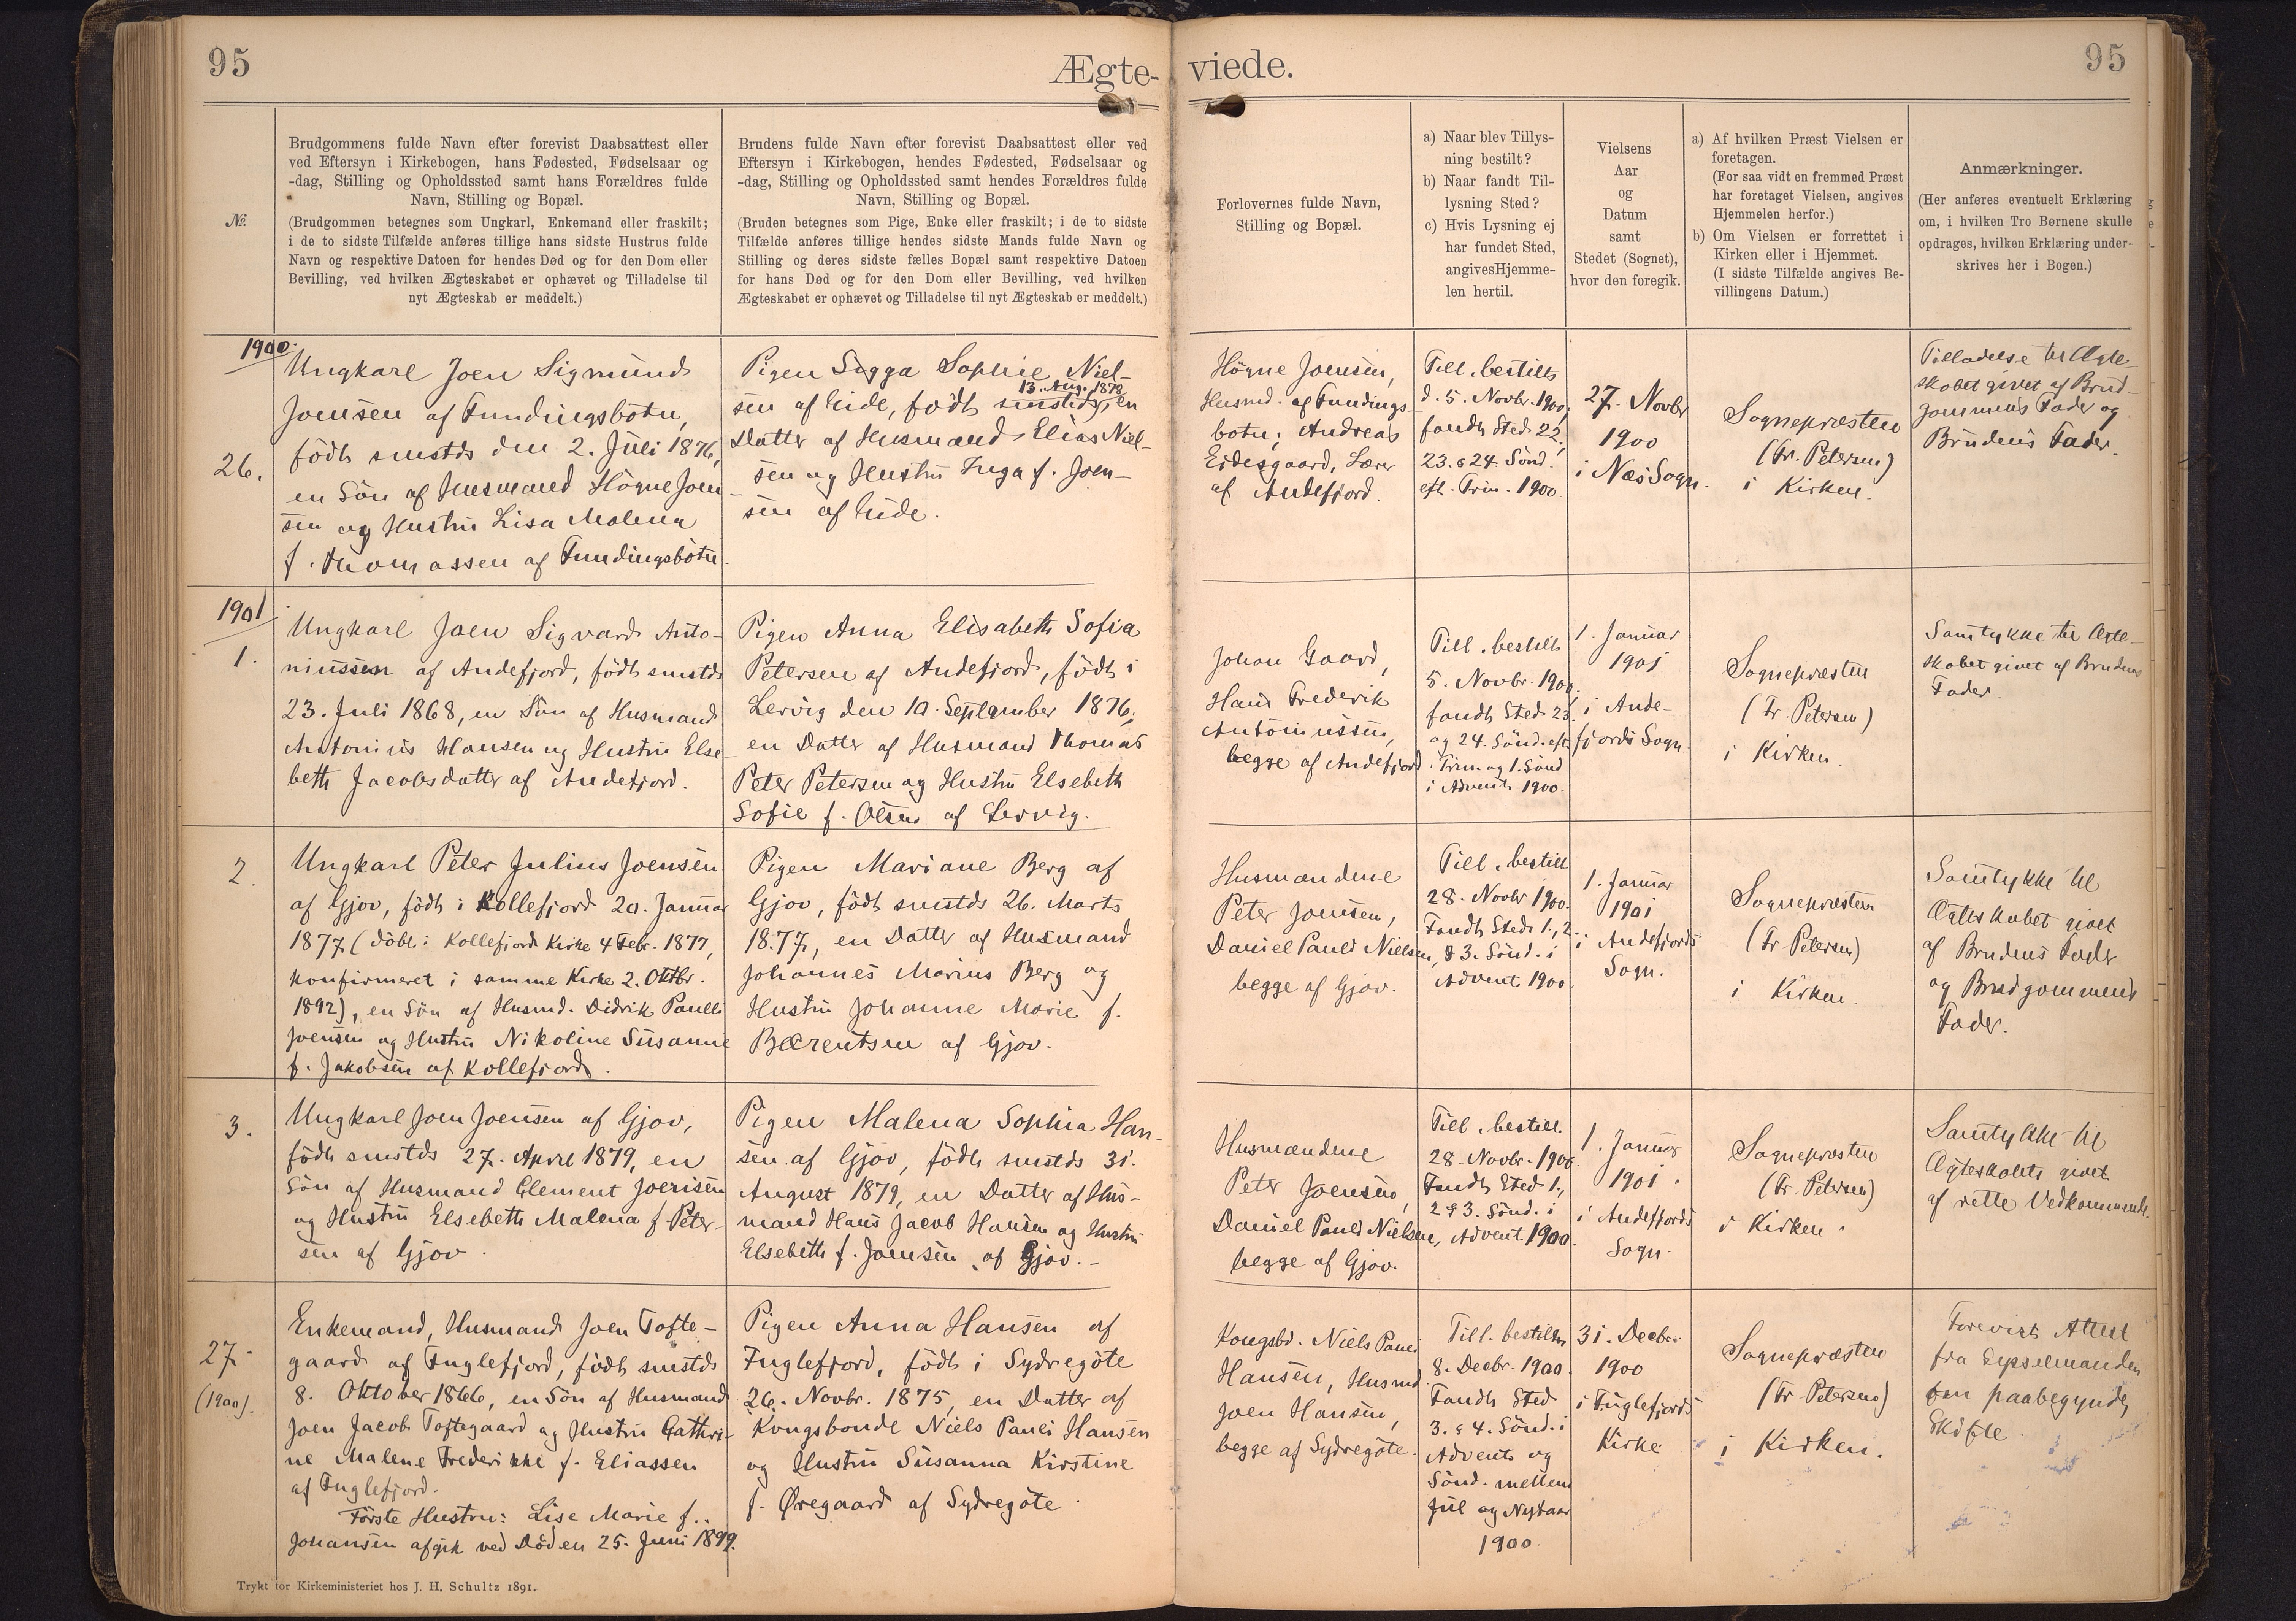 95
Ægte-
viede.
95
№.
Brudgommens fulde Navn efter forevist Daabsattest eller
ved Eftersyn i Kirkebogen, hans Fødested, Fødselsaar og
-dag, Stilling og Opholdssted samt hans Forældres fulde
Navn, Stilling og Bopæl.
(Brudgommen betegnes som Ungkarl, Enkemand eller fraskilt;
i de to sidste Tilfælde anføres tillige hans sidste Hustrus fulde
Navn og respektive Datoen for hendes Død og for den Dom eller
Bevilling, ved hvilken Ægteskabet er ophævet og Tilladelse til
nyt Ægteskab er meddelt.)
Brudens fulde Navn efter forevist Daabsattest eller ved
Eftersyn i Kirkebogen, hendes Fødested, Fødselsaar og
-dag, Stilling og Opholdssted samt hendes Forældres fulde
Navn, Stilling og Bopæl.
(Bruden betegnes som Pige, Enke eller fraskilt; i de to sidste
Tilfælde anføres tillige hendes sidste Mands fulde Navn og
Stilling og deres sidste fælles Bopæl samt respektive Datoen
for hans Død og for den Dom eller Bevilling, ved hvilken
Ægteskabet er ophævet og Tilladelse til nyt Ægteskab er meddelt.)
Forlovernes fulde Navn,
Stilling og Bopæl.
a) Naar blev Tillys-
ning bestilt?
b) Naar fandt Til-
lysning Sted?
c) Hvis Lysning ej
har fundet Sted,
angives Hjemme-
len hertil.
Vielsens
Aar
og
Datum
samt
Stedet (Sognet),
hvor den foregik.
a) Af hvilken Præst Vielsen er
foretagen.
(For saa vidt en fremmed Præst
har foretaget Vielsen, angives
Hjemmelen herfor.)
b) Om Vielsen er forrettet i
Kirken eller i Hjemmet.
(I sidste Tilfælde angives Be-
villingens Datum.)
Anmærkninger.
(Her anføres eventuelt Erklæring
om, i hvilken Tro Børnene skulle
opdrages, hvilken Erklæring under-
skrives her i Bogen.)
1900.
26.
Ungkarl Joen Sigmund
Joensen af Fundingsbotn,
födt smstds den 2. Juli 1876,
en Sön af Husmand Högne Joen-
sen og Hustru Lisa Malena
f. Thomassen af Fundingsbotn.
Pigen Sigga Sophie Niel-
13. Aug. 1879
sen af Eide, födt smstds, en
Datter af Husmand Elias Niel-
sen og Hustru Inga f. Joen-
sen af Eide.
Högne Joensen,
Husmd. af Fundings-
botn; Andreas
Eidesgaard, Lærer
af Andefjord.
Till. bestilt
d. 5. Novbr. 1900,
fandt Sted 22,
23. & 24. Sönd.
eft. Trin. 1900.
27. Novbr
1900
i Næs Sogn.
Sognepræsten
(Fr. Petersen)
i Kirken.
Tilladelse til Ægte-
skabet givet af Brud-
gommens Fader og
Brudens Fader.
1901
1.
Ungkarl Joen Sigvard Anto-
niussen af Andefjord, födt smstds
23. Juli 1868, en Sön af Husmand
Antonius Hansen og Hustru Else
beth Jacobsdatter af Andefjord.
Pigen Anna Elisabeth Sofia
Petersen af Andefjord, födt i
Lervig den 10. September 1876,
en Datter af Husmand Thomas
Peter Petersen og Hustru Elsebeth
Sofie f. Olsen af Lervig.
Johan Gaard,
Hans Frederik
Antoniussen,
begge af Andefjord
Till. bestilt
5. Novbr. 1900,
fandt Sted 23.
og 24. Sönd. eft.
Trin. og 1. Sönd
i Advent 1900.
1. Januar
1901
i Ande-
fjords Sogn.
Sognepræsten
(Fr. Petersen)
i Kirken.
Samtykke til Ægte-
skabet givet af Brudens
Fader.
2.
Ungkarl Peter Julius Joensen
af Gjov, födt i Kollefjord 20. Januar
1877 (döbt i Kollefjord Kirke 4 Febr. 1877,
konfirmeret i samme Kirke 2. Oktbr.
1892), en Sön af Husmd. Didrik Paulli
Joensen og Hustru Nikoline Susanne
f. Jakobsen af Kollefjord.
Pigen Mariane Berg af
Gjov, födt smstds 26. Marts
1877, en Datter af Husmand
Johannes Marius Berg og
Hustru Johanne Marie f.
Bærentsen af Gjov.
Husmændene
Peter Joensen,
Daniel Pauli Nielsen,
begge af Gjov.
Till. bestilt
28. Novbr 1900.
Fandt Sted 1., 2.
& 3. Sönd. i
Advent 1900.
1. Januar
1901
i Andefjords
Sogn.
Sognepræsten
(Fr Petersen)
i Kirken.
Samtykke til
Ægteskabet givet
af Brudens Fader
og Brudgommens
Fader.
3.
Ungkarl Joen Joensen af Gjov,
födt smstds 27. April 1879, en
Sön af Husmand Clement Joensen
og Hustru Elsebeth Malena f. Peter-
sen af Gjov.
Pigen Malena Sophia Han-
sen af Gjov, födt smstds 31.
August 1879, en Datter af Hus-
mand Hans Jacob Hansen og Hustru
Elsebeth f. Joensen af Gjov.
Husmændene
Peter Joensen,
Daniel Pauli Nielsen,
begge af Gjov.
Till. bestilt
28. Novbr. 1900.
Fandt Sted 1.,
2 & 3. Sönd. i
Advent 1900.
1. Januar
1901.
i Andefjords
Sogn.
Sognepræsten
(Fr. Petersen)
i Kirken.
Samtykke til
Ægteskabet givet
af rette Vedkommende.
27.
(1900).
Enkemand, Husmand Joen Tofte-
gaard af Fuglefjord, födt smstds
8. Oktober 1866, en Sön af Husmand
Joen Jacob Toftegaard og Hustru Cathri-
ne Malene Frederikke f. Eliassen
af Fuglefjord.
Förste Hustru: Lise Marie f.
Johansen afgik ved Döden 25. Juni 1899.
Pigen Anna Hansen af
Fuglefjord, födt i Sydregöte
26. Novbr. 1875, en Datter af
Kongsbonde Niels Pauli Hansen
og Hustru Susanna Kirstine
f. Øregaard af Sydregöte.
Kongsbd. Niels Pauli
Hansen, Husmd.
Joen Hansen,
begge af Sydregöte.
Till. bestilt
8. Decbr. 1900.
Fandt Sted
3. & 4. Sönd. i
Advent og
Sönd. mellem
Jul og Nytaar
1900.
31. Decbr.
1900
i Fuglefjords
Kirke
Sognepræsten
(Fr Petersen)
i Kirken.
Forevist Attest
fra Sysselmanden
om paabegyndt
Skifte.
Trykt for Kirkeministeriet hos J. H. Schultz 1891.